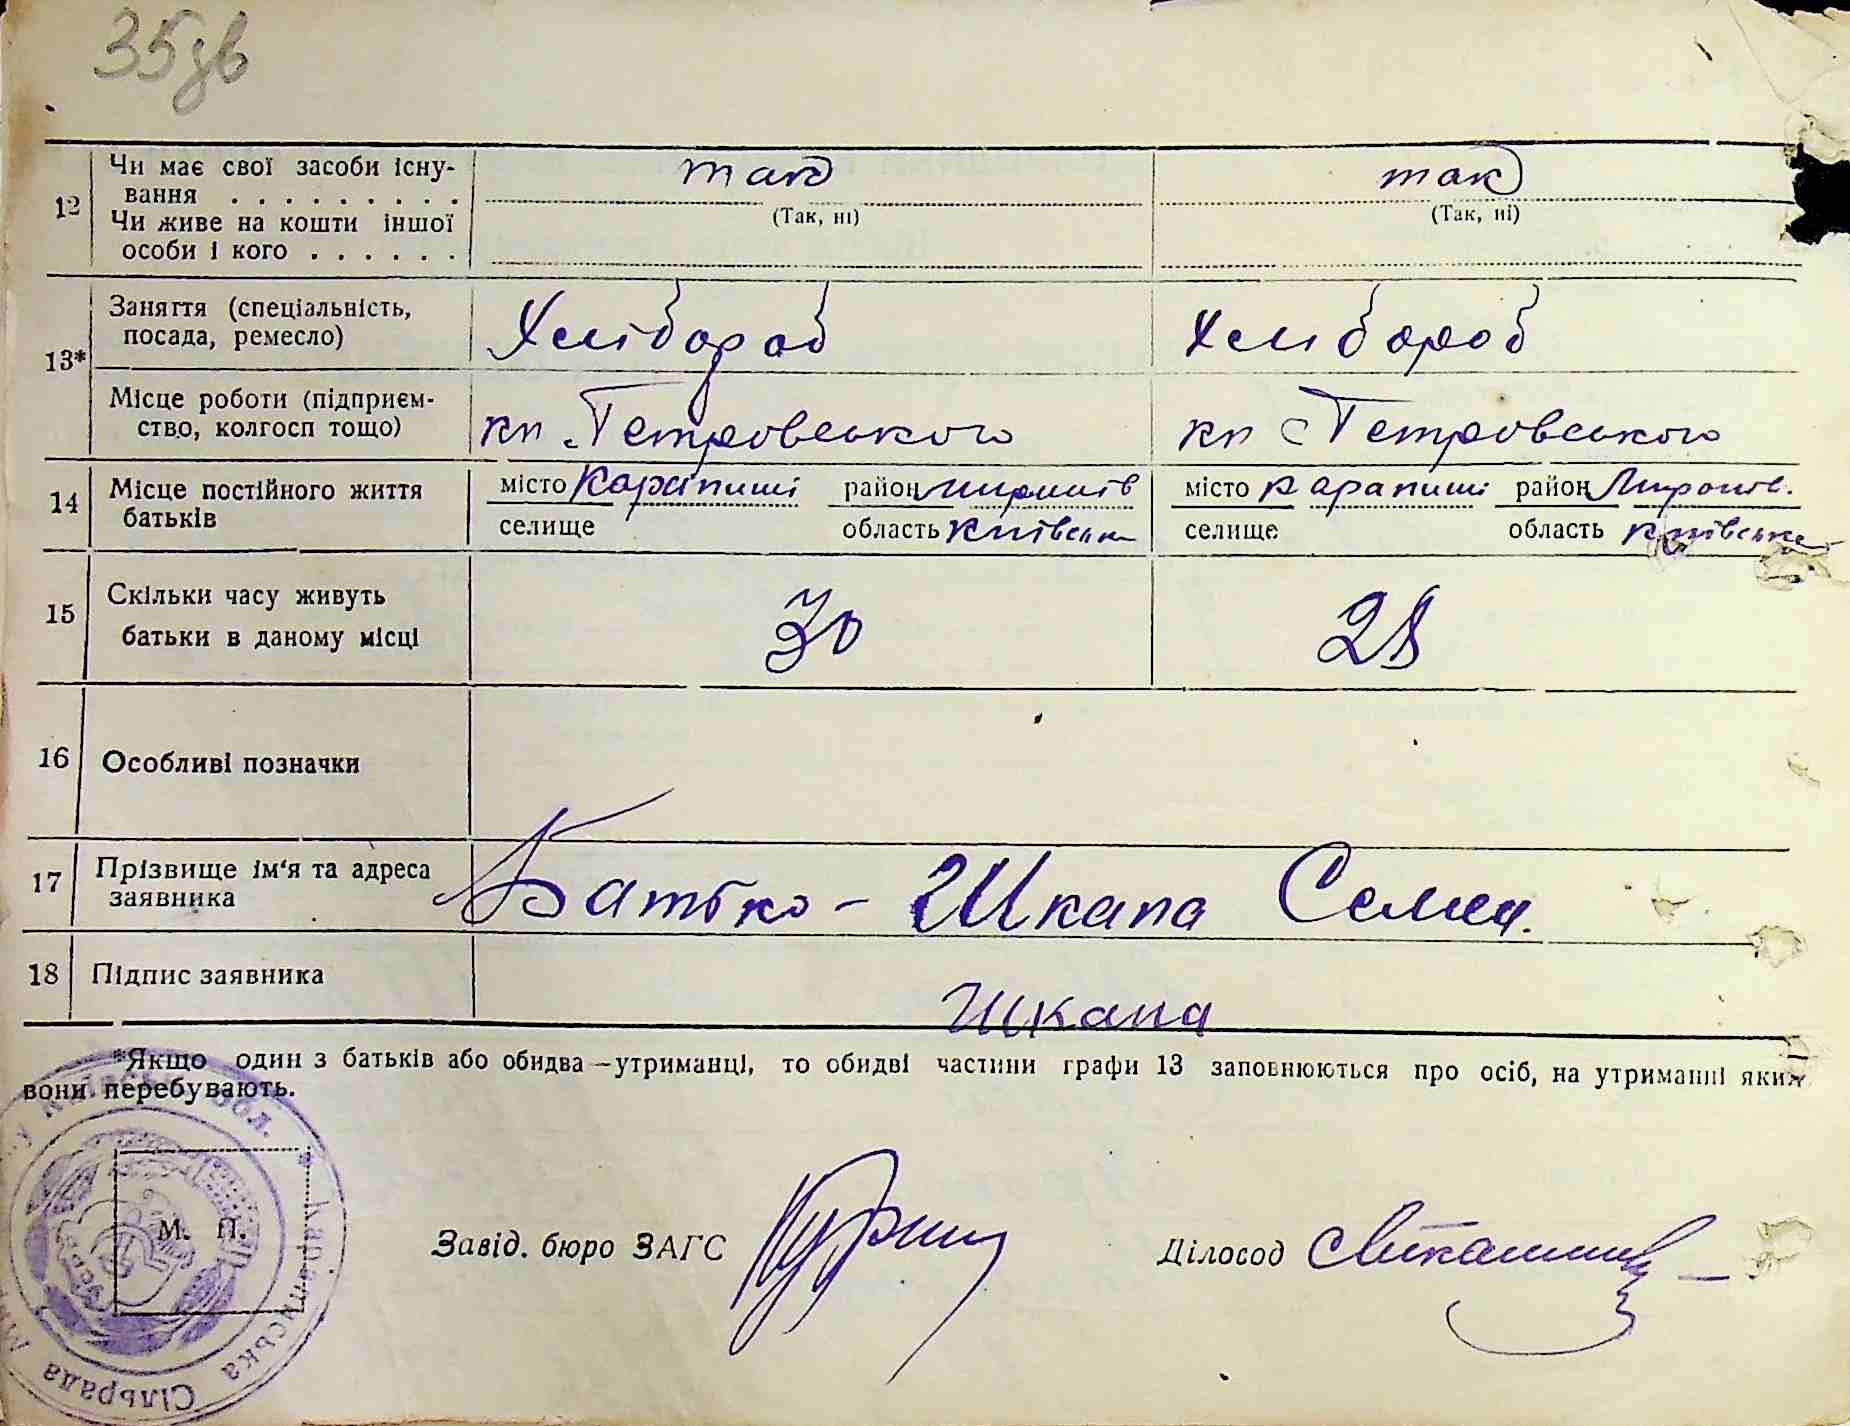 35зв
12 Чи має свої засоби існу-
вання . . . . . . . . . так так
Чи живе на кошти іншої (Так, ні) (Так, ні)
особи і кого . . . . . .
13* Заняття (спеціальність,
посада, ремесло) Хлібороб Хлібороб
Місце роботи (підприєм-
ство, колгосп тощо) кп Петровського кп Петровського
14 Місце постійного життя місто Карапиші район Миронів місто Карапиші район Миронів.
батьків селище область Київська селище область Київська
15 Скільки часу живуть
батьки в даному місці 30 28
16 Особливі позначки
17 Прізвище ім'я та адреса
заявника Батько - Шкапа Семен.
18 Підпис заявника Шкапа
*Якщо один з батьків або обидва—утриманці, то обидві частини графи 13 заповнюються про осіб, на утриманні яких
вони перебувають.
М. П.
Завід. бюро ЗАГС
Діловод
Караписька Сільрада обл.